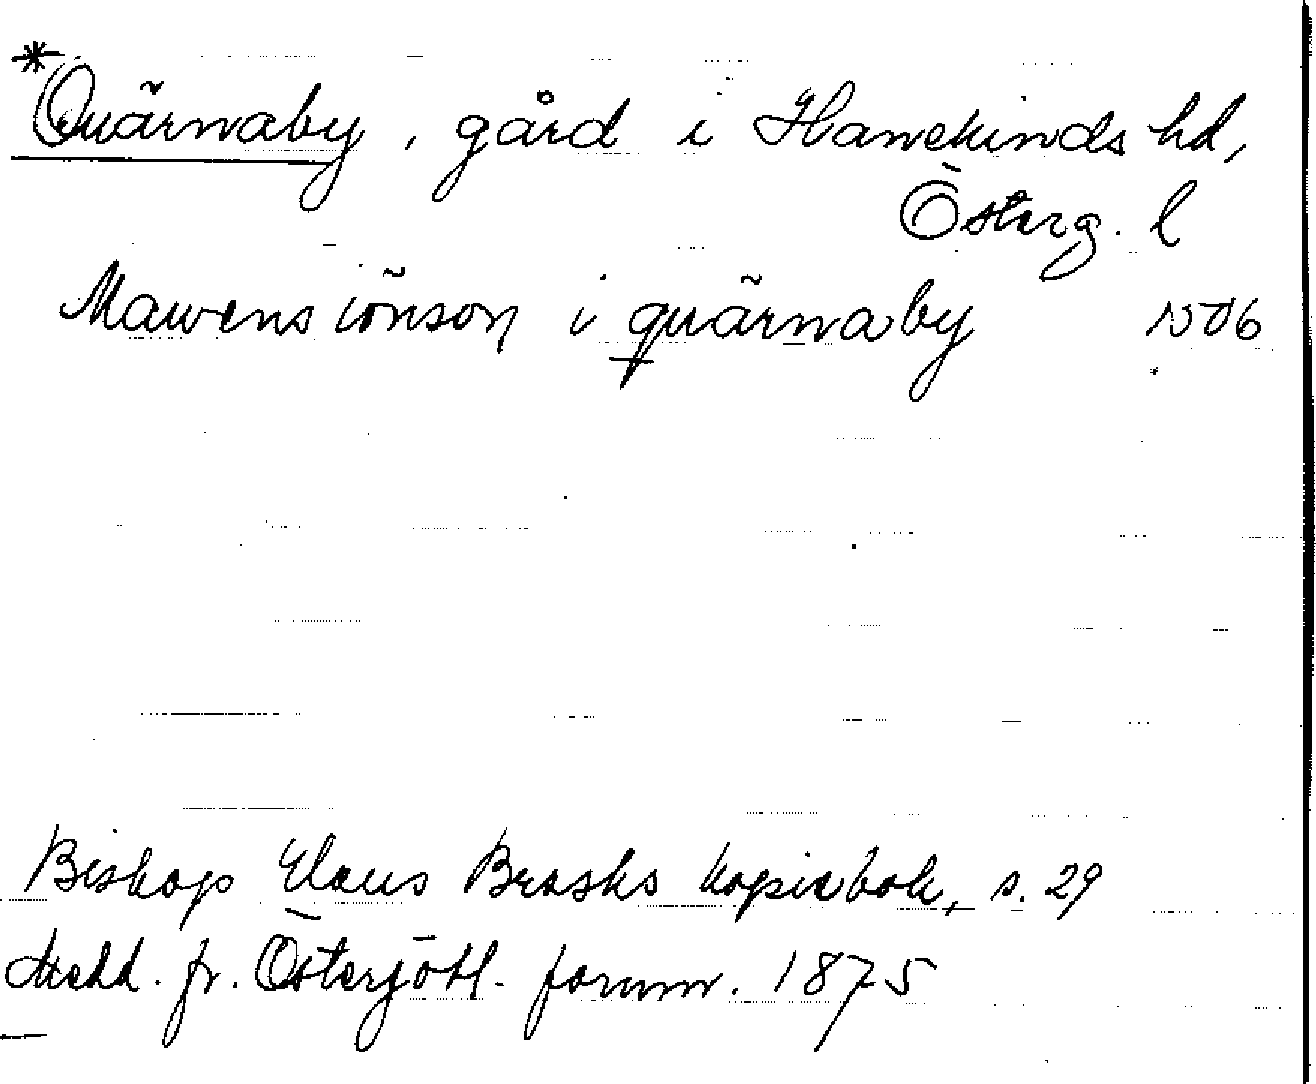 *Quärnaby, gård i Hanekinds hd,
Österg. l
Mawens iönson i quärnaby 1506
Biskop Claus Brasks kopiebok, s. 29
Medd. fr. Östergötl. fornm. 1875